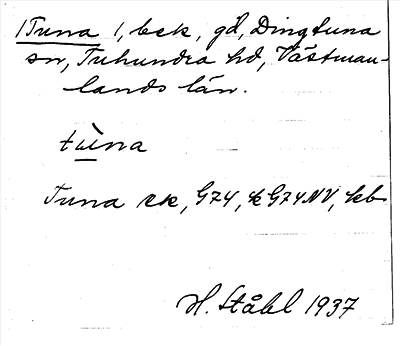 /Tuna /, bsk, gd, Dingtuna
sn, Tuhundra hd, Västman-
lands län.
tùna
Tuna ek, G74, k G74NV, kb
H. Ståhl 1937